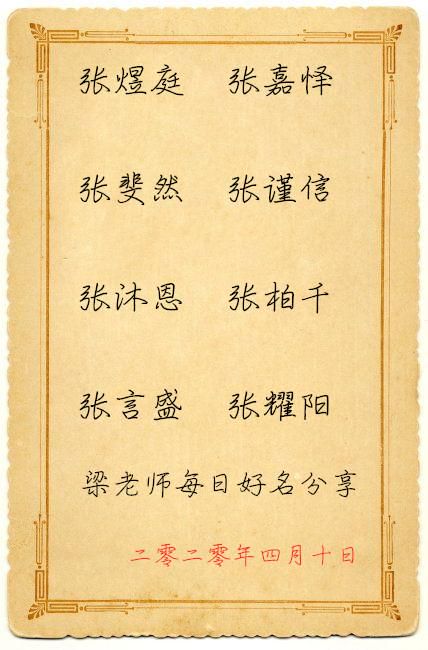 张煜庭 张嘉怿
张斐然 张谨信
张沐恩 张柏千
张言盛 张耀阳
梁老师每日好名分享
二零二零年四月十日